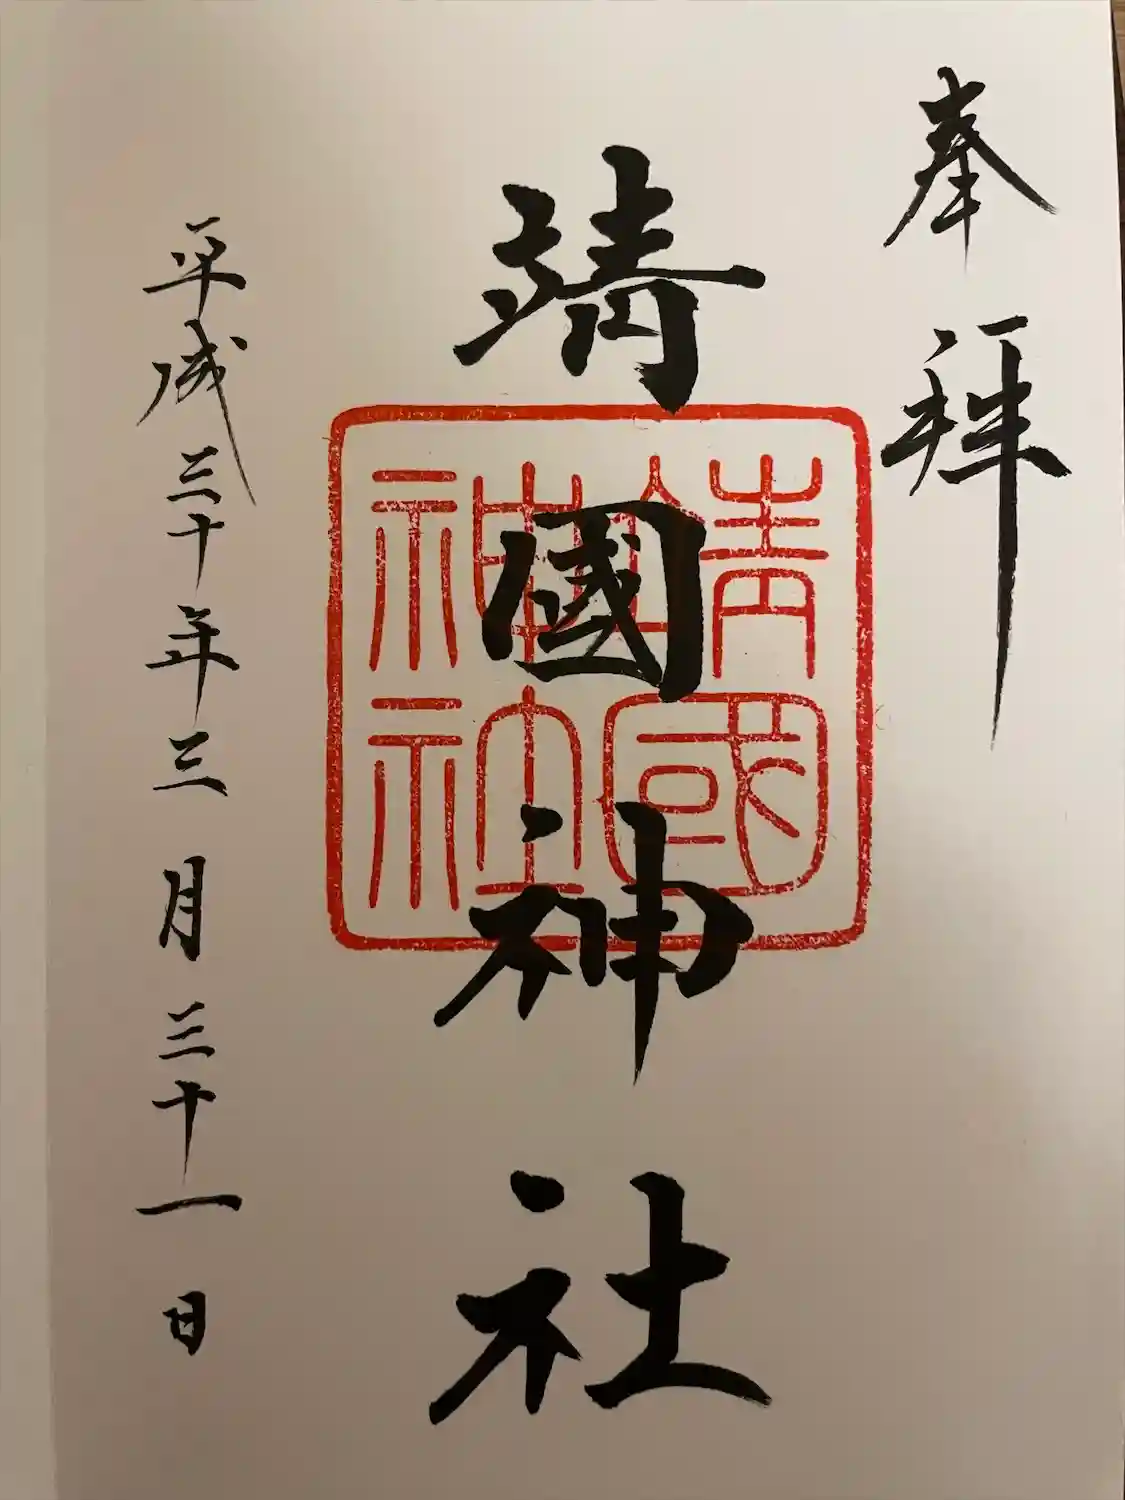 奉拜
靖國神社
靖國
神社
平成三十年三月三十一日